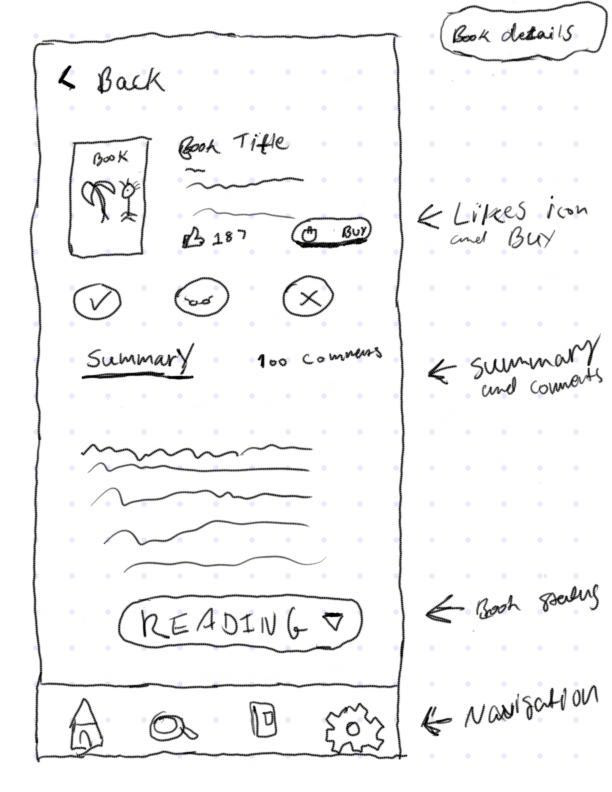 Book details
< Back
BOOK
Book Title
187
BUY
← Likes icon
and BUY
Summary
100 Comments
← Summary
and Coments
READING ▽
← Book status
← Navigation